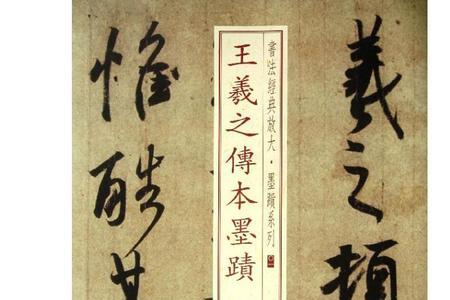 羲之頓
書法經典放大·墨蹟系列
王羲之傳本墨蹟
惟酷甚